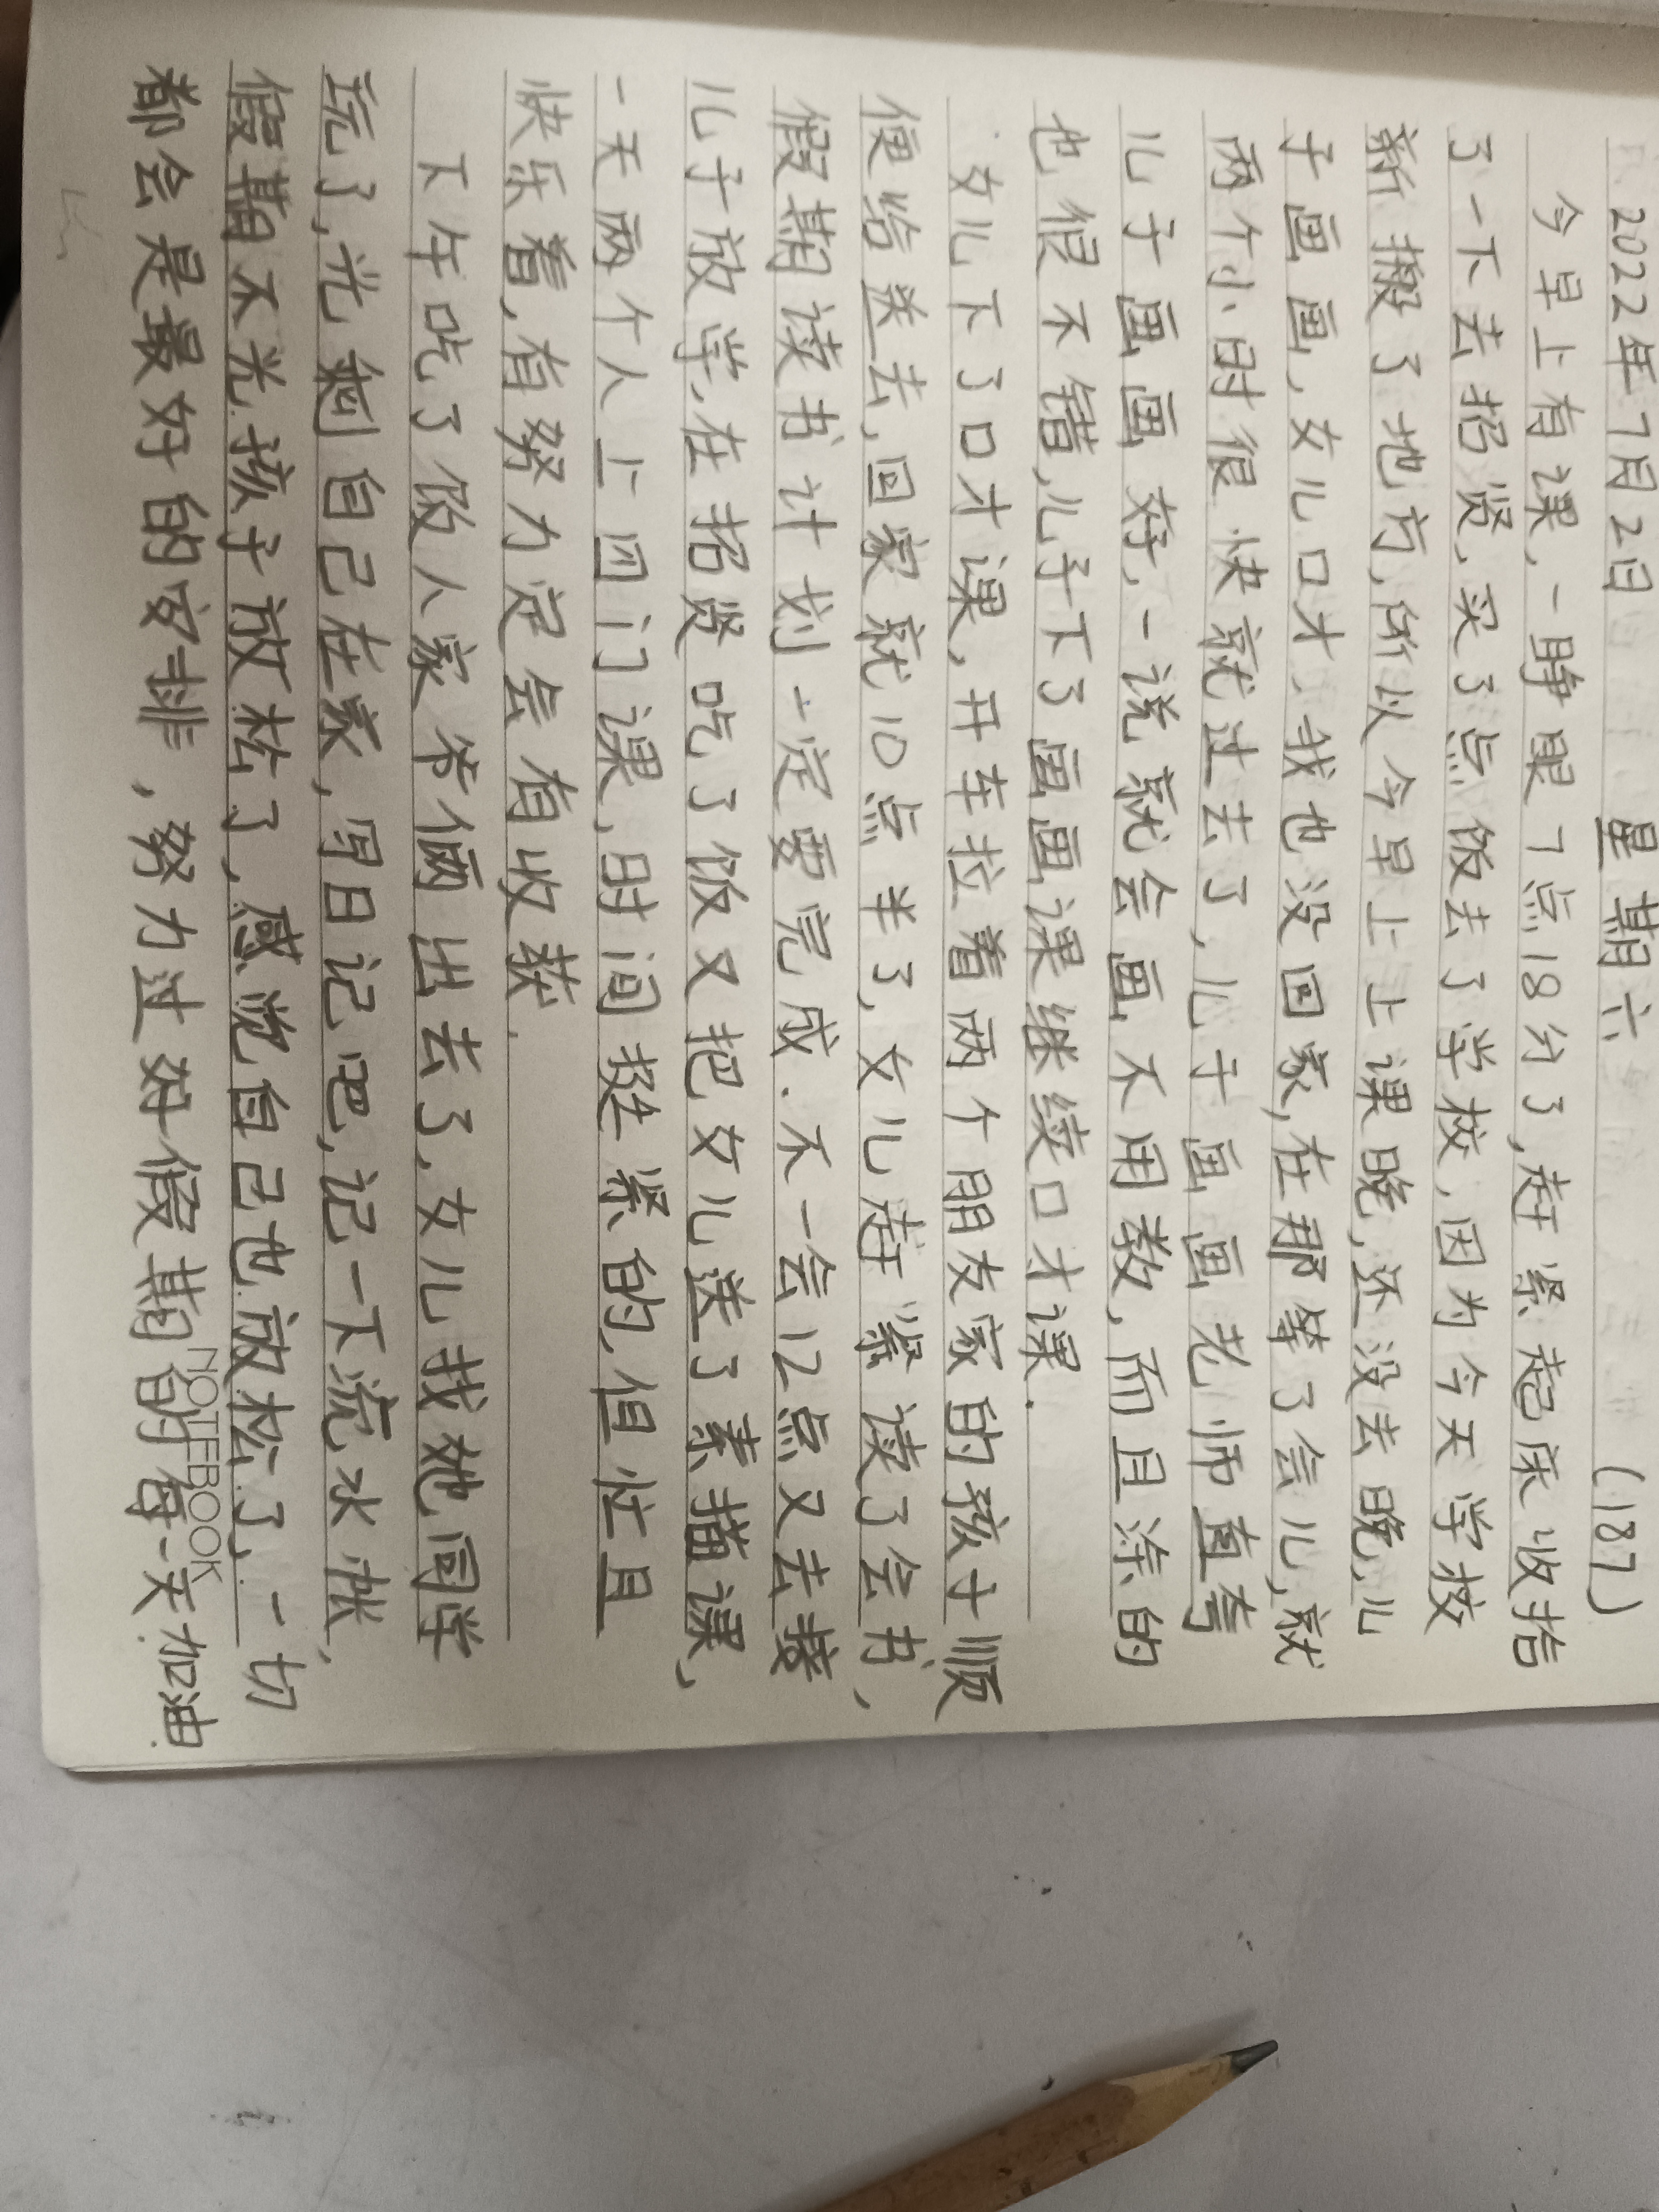 2022年7月2日 星期六 (187)
今早上有课,一睁眼7点18分了,赶紧起床收拾
了一下去招贤,买了点饭去了学校,因为今天学校
新搬了地方,所以今早上上课晚,还没去晚,儿
子画画,女儿口才、我也没回家,在那等了会儿,就
两个小时很快就过去了,儿子画画老师直夸
儿子画画好,一说就会画不用教,而且涂的
也很不错,儿子下了画画课继续口才课.
女儿下了口才课,开车拉着两个朋友家的孩子顺
便给送去,回家就10点半了,女儿赶紧读了会书,
假期读书计划一定要完成.不一会12点又去接
儿子放学,在招贤吃了饭又把女儿送了素描课,
一天两个人上四门课,时间挺紧的,但忙且
快乐着,有努力定会有收获.
下午吃了饭人家爷俩出去了,女儿找她同学
玩了,光剩自己在家,写日记吧,记一下流水账,
假期不光孩子放松了,感觉自己也放松了,一切
都会是最好的安排,努力过好假期的每一天.加油.
NOTEBOOK